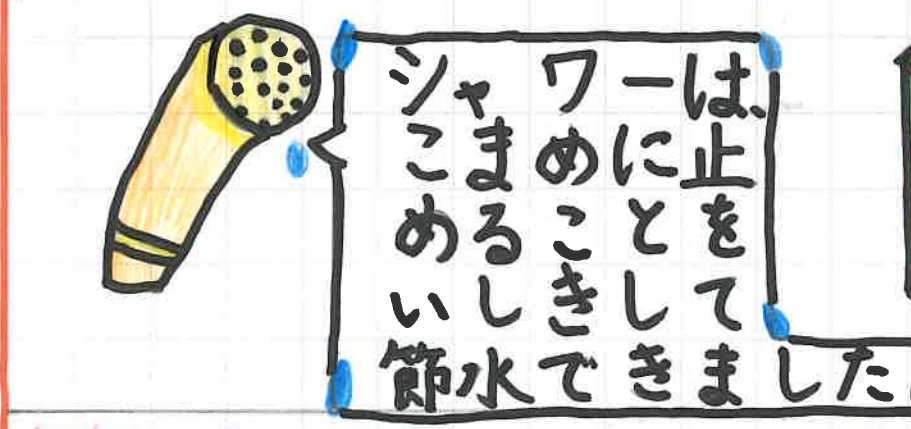 シャワーは、
こまめに止
めることを
いしきして
節水できました